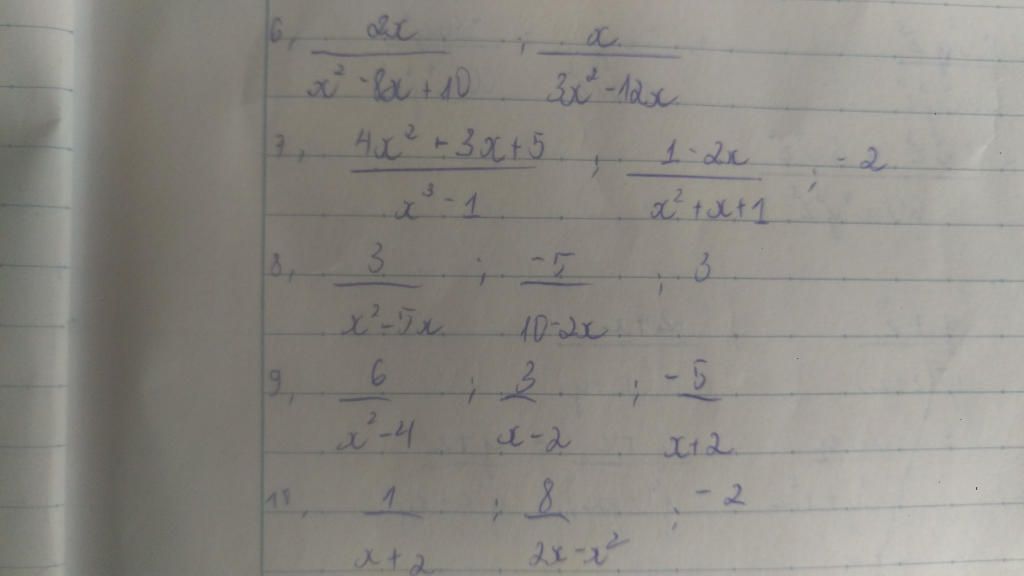 6, 2x/(x² - 8x + 10) ; x/(3x² - 12x)
7, (4x² - 3x + 5)/(x³ - 1) ; (1 - 2x)/(x² + x + 1) ; - 2
8, 3/(x² - 5x) ; -5/(10 - 2x) ; 3
9, 6/(x² - 4) ; 3/(x - 2) ; - 5/(x + 2)
1/(x + 2) ; 8/(2x - x²) ; - 2